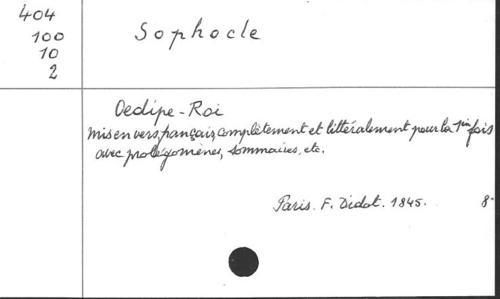 404
100
10
2
Sophocle
Oedipe-Roi
mis en vers français complètement et littéralement pour la 1re fois
avec prolégomènes, sommaires, etc.
Paris. F. Didot. 1845. 8°